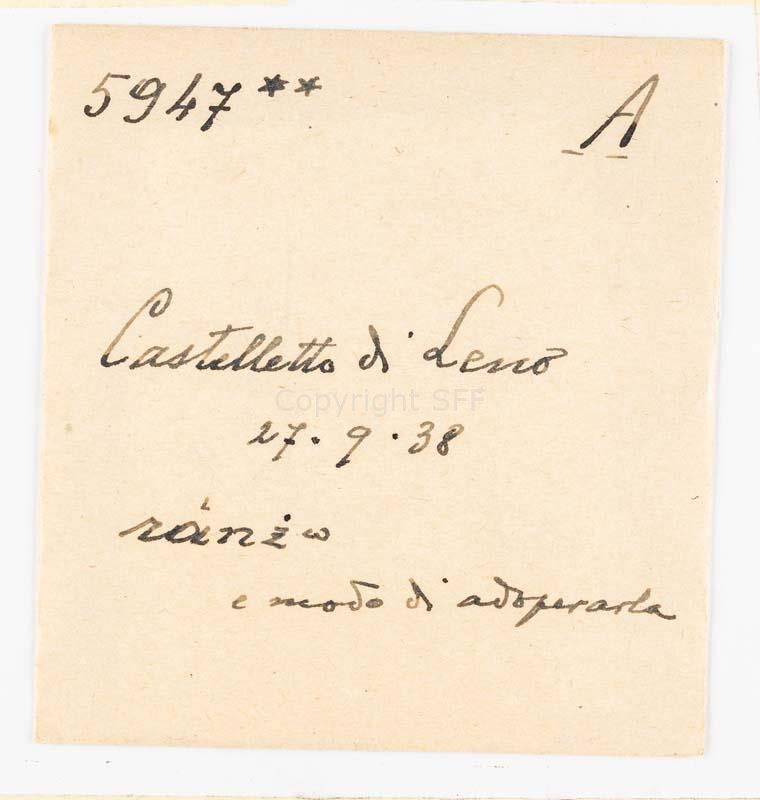 5947**
A
Castelletto di Leno
Copyright SFF
27.9.38
e modo di adoperarla